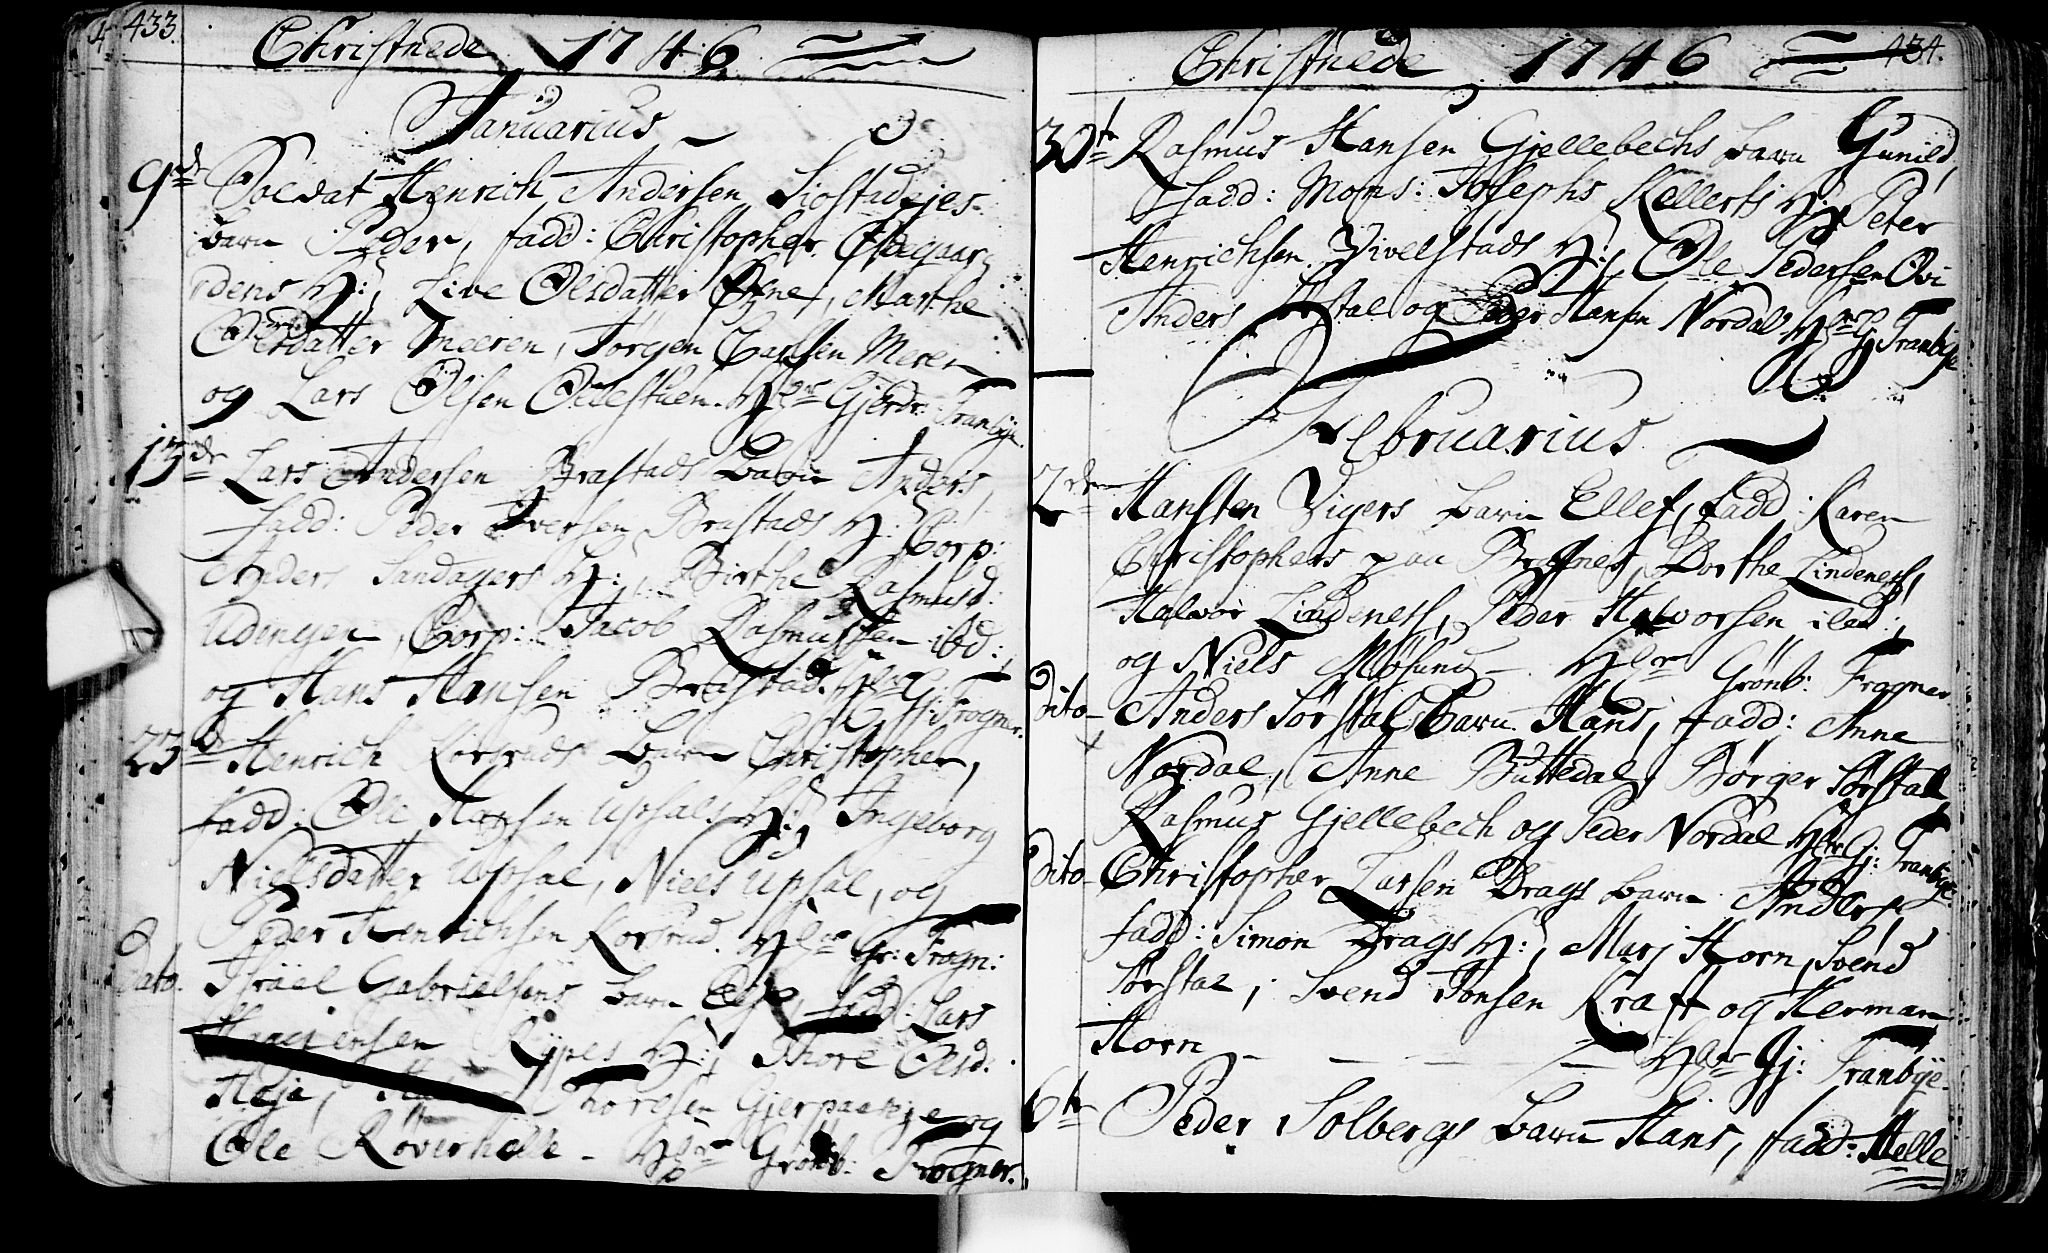 433.
Christnede 1746
Januarius
9de Soldat Henrich Andersen Siøstadejes
barn Peder, fadd: Christopher Ødegaar-
dens H:, Live Olsdatter Øfne, Marthe
Olsdatter Meeren, Jørgen Carlsen Meren
og Lars Olsen Ødestuen. Hr Gjerdr: Tranbye.
13de Lars Andersen Brastads barn Anders,
fadd: Peder Iversen Brastads H:, Corp:
Anders Sandagers H:, Birthe Rasmusd:
Udengen, Corp: Jacob Rasmussen ibd:
og Hans Hansen Brastad. G: Frogner.
23d Henrich Korsruds barn Christopher,
fadd: Ole Hansen Uphals H:, Ingeborg
Nielsdatter Uphal, Niels Uphal, og
Peder Henrichsen Korsrud. Gr: Frogn:
Dato. Israel Gabrielsens barn Else, fadd: Lars
Rypes H:, Thore Olsd.
Heje, Thoresen Gjerpaaeie og
Ole Røverholle - Grønb: Frogner.
434.
Christnede 1746
30te Rasmus Hansen Gjellebechs barn Gunild,
fadd: Mons: Josephs Kellerts H:, Peter
Henrichsen Vivelstads H:, Ole Pedersen Ovi
Anders Sørstal og Peder Hansen Nordal. Gj Tranbye
Februarius
2den Hansten Vigers barn Ellef, fadd: Karen
Christophers paa Brøfnes, Dorthe Lindenes,
Halvor Lindenes, Peder Halvorsen ibid:,
og Niels Møsund - Grønb: Frogner.
Dito- Anders Sørstals barn Hans, fadd: Anne
Nordal, Anne Buttedal, Børger Sørstal
Rasmus Gjellebech og Peder Nordal Gj: Tranbye.
Dito- Christopher Larsen Drags barn Anders,
fadd: Simon Drags H:, Marj Horn, Svend
Sørstal, Svend Jonsen Kraft og Herman
Horn - - - - Gj: Tranbye.
6te Peder Solbergs barn Hans, fadd: Helle